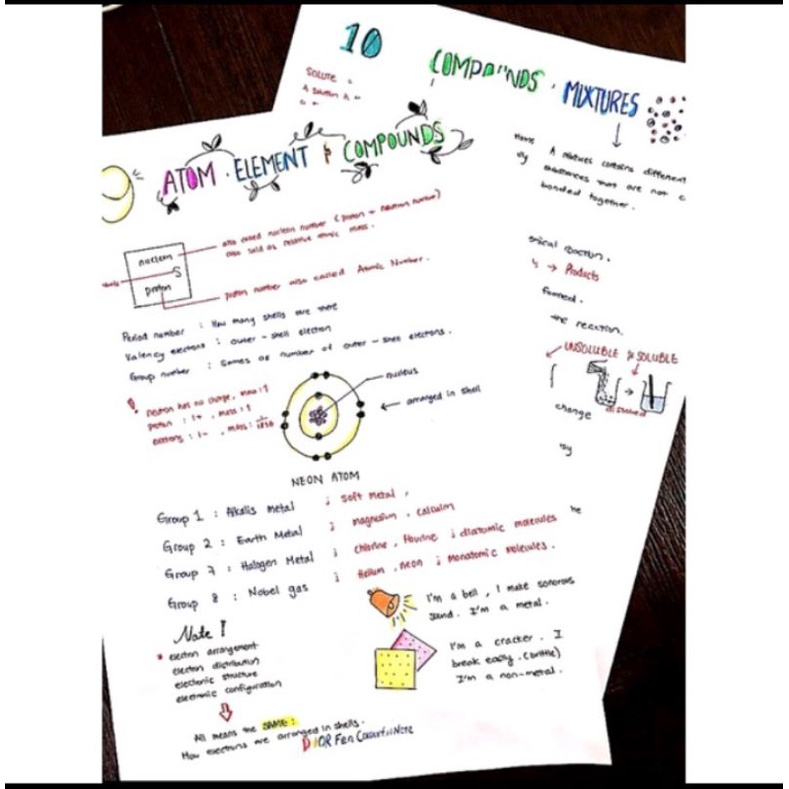 10
COMPOUNDS · MIXTURES
SOLUTE =
A solution is =
A mixtures contains different
substances that are not c
bonded together.
ATOM · ELEMENT & COMPOUNDS
also called nucleon number (proton + neutron number)
also said as relative atomic mass.
nucleon
S
proton
proton number also called Atomic Number.
reaction.
↳ → Products
formed.
the reaction.
UNSOLUBLE & SOLUBLE
dissolved
change
by
he
Period number : How many shells are there
Valency electrons : outer - shell electron
Group number : Sames as number of outer - shell electrons.
! neutron has no charge, mass : 1
proton : 1+ , mass : 1
electrons : 1- , mass :
nucleus
arranged in shell
NEON ATOM
Group 1 : Alkalis metal ; soft metal ,
Group 2 : Earth Metal ; magnesium , calcium
Group 7 : Halogen Metal ; chlorine , flourine ; diatomic molecules
Group 8 : Nobel gas ; Helium , neon ; Monatomic molecules.
I'm a bell , I make sonorous
sound. I'm a metal.
I'm a cracker . I
break easily . (brittle)
I'm a non-metal.
Note !
* electron arrangement
electron distribution
electronic structure
electronic configuration
All means the SAME :
How electrons are arranged in shells.
DIOR Fen ColourfulNote